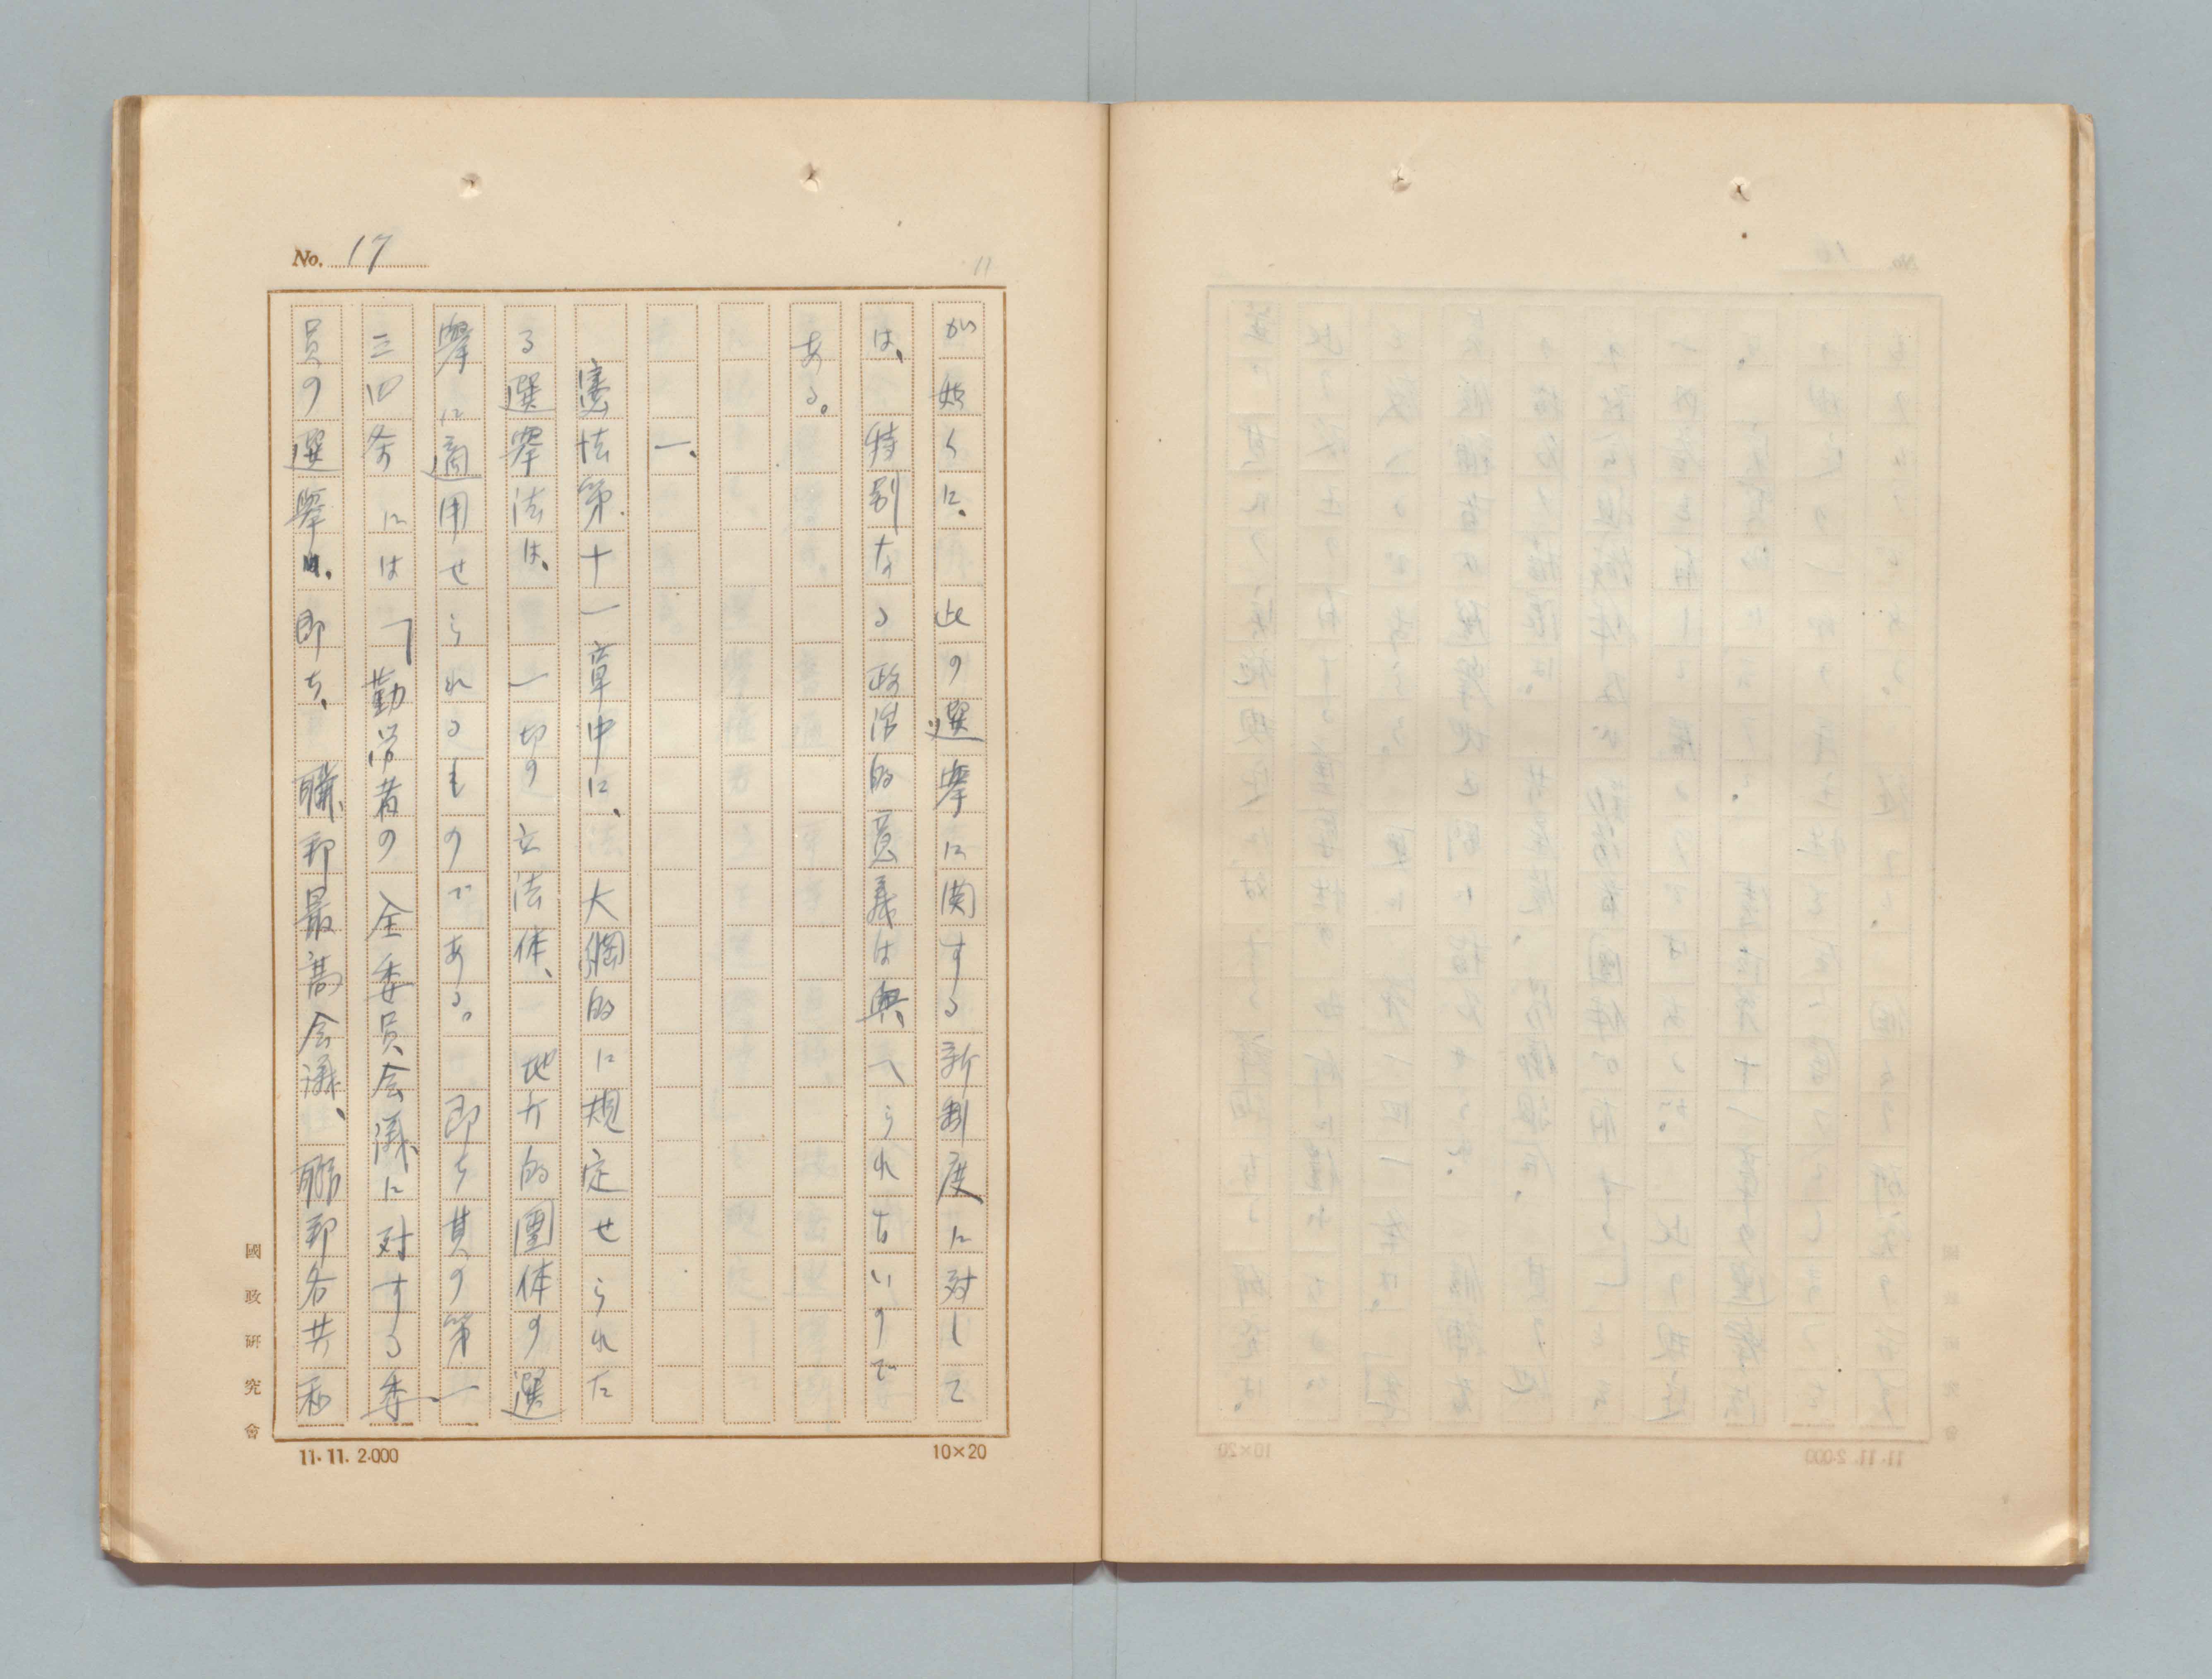 No. 17
11
が如くに、此の選挙に関する新制度に対して
は、特別なる政治的意義は与へられないので
ある。
一、
憲法第十一章中に、大綱的に規定せられた
る選挙法は、一切の立法体、地方的團体の選
擧に適用せられるものである。即ち其の第一
三四条には「勤労者の全委員会議に対する委
員の選擧は、即ち、聯邦最高会議、聯邦各共和
國政研究會
11.11. 2.000
10×20